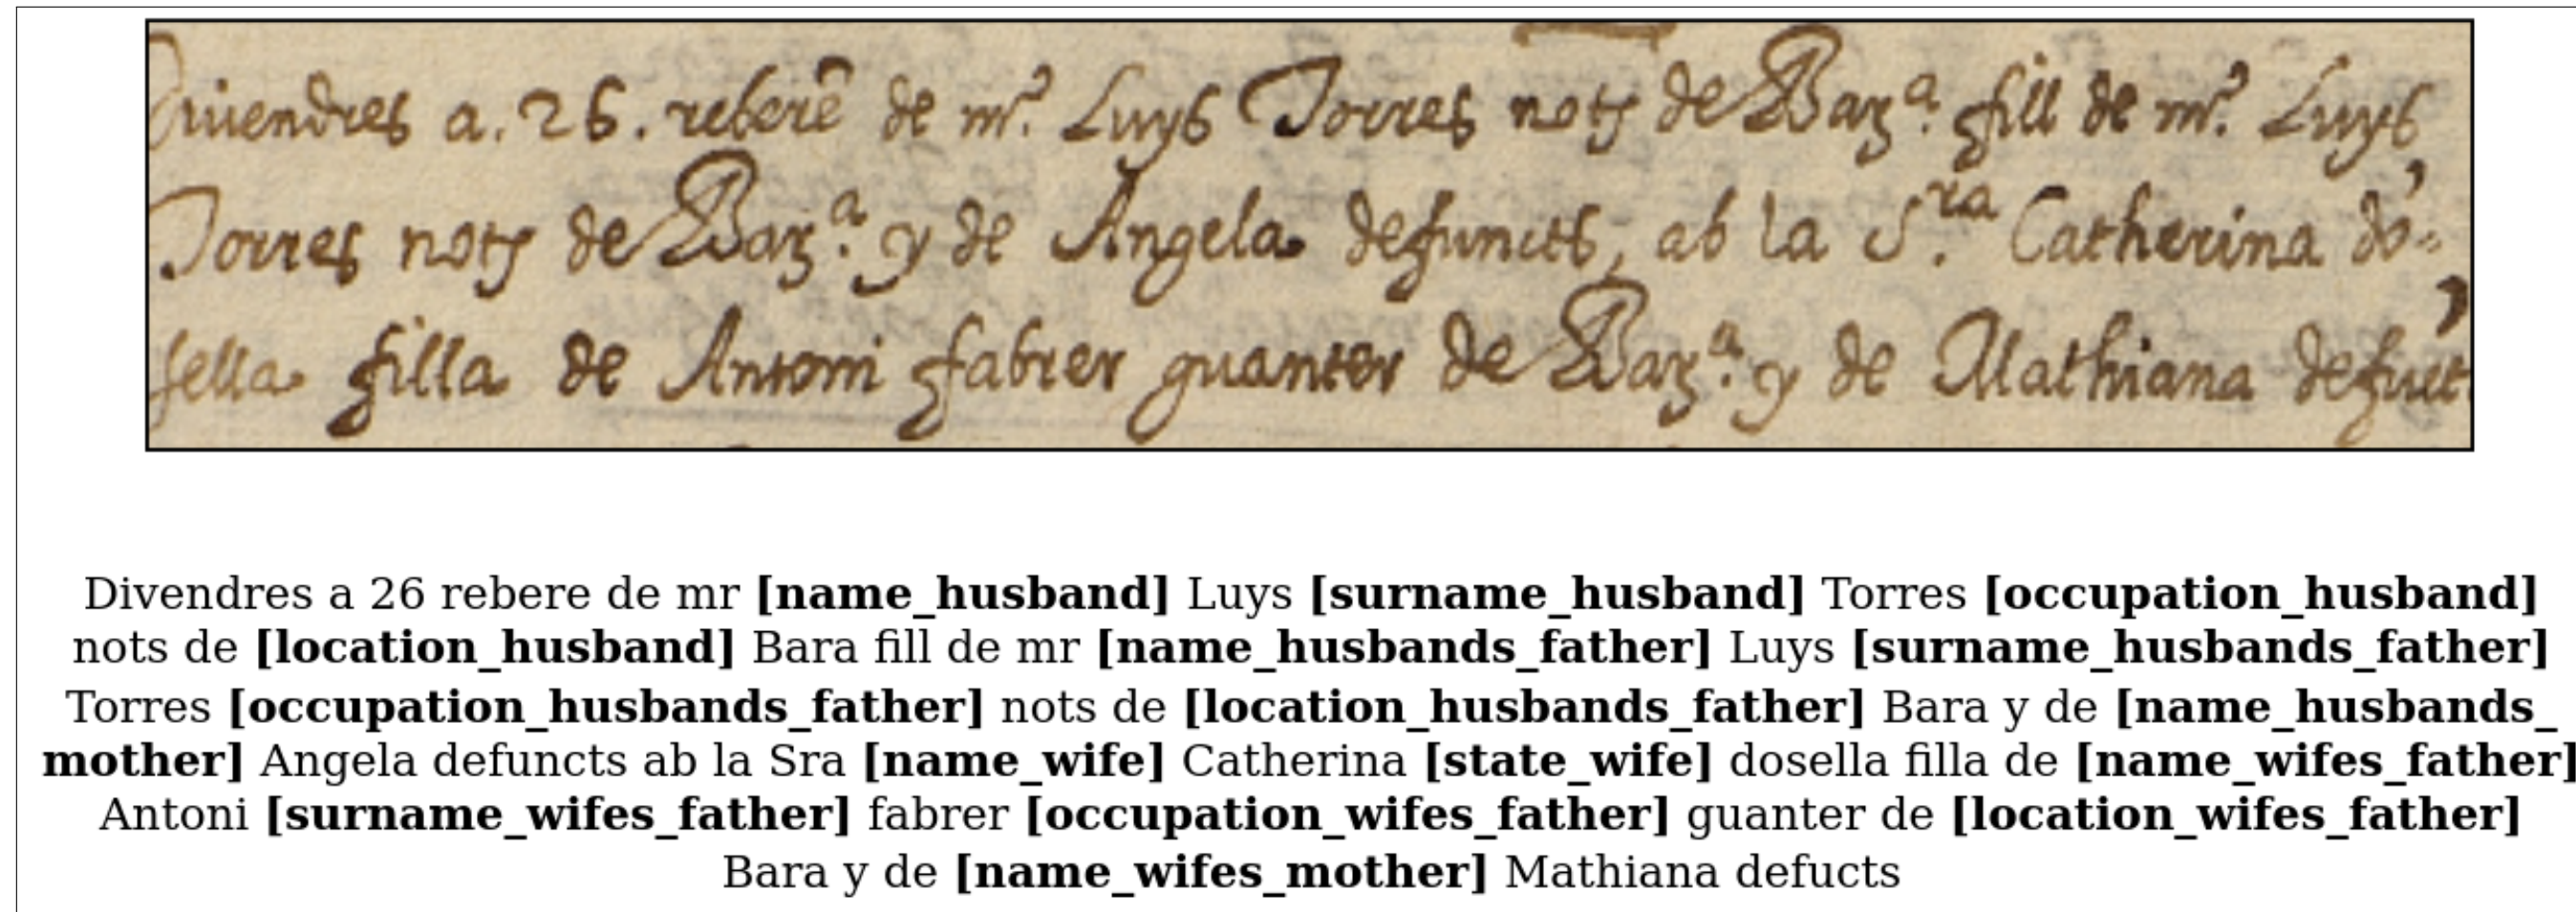 Divendres a. 26. reberẽ de mʳ. Luys Torres notʒ de Barᵃ. fill de mʳ. Luys
Torres notʒ de Barᵃ. y de Angela defuncts, ab la S.ʳᵃ Catherina do-
sella filla de Antoni fabrer guanter de Barᵃ. y de Mathiana
Divendres a 26 rebere de mr [name_husband] Luys [surname_husband] Torres [occupation_husband]
nots de [location_husband] Bara fill de mr [name_husbands_father] Luys [surname_husbands_father]
Torres [occupation_husbands_father] nots de [location_husbands_father] Bara y de [name_husbands_
mother] Angela defuncts ab la Sra [name_wife] Catherina [state_wife] dosella filla de [name_wifes_father]
Antoni [surname_wifes_father] fabrer [occupation_wifes_father] guanter de [location_wifes_father]
Bara y de [name_wifes_mother] Mathiana defucts